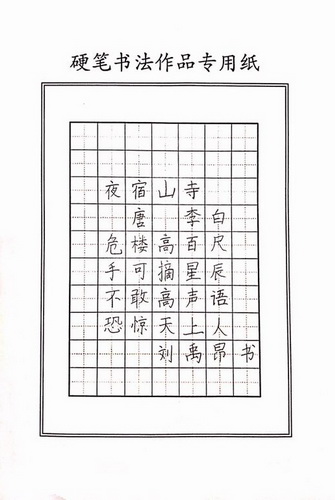 硬笔书法作品专用纸
夜宿山寺
唐 李白
危楼高百尺
手可摘星辰
不敢高声语
恐惊天上人
刘禹昂书